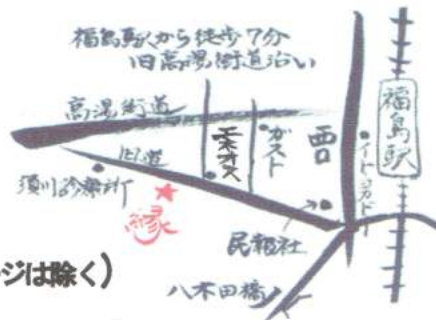 福島駅から徒歩7分
旧高湯街道沿い
高湯街道
旧道
須川診療所
縁
エネオス
ガスト
西口
イトーヨーカドー
福島駅
民報社
八木田橋
ージは除く)